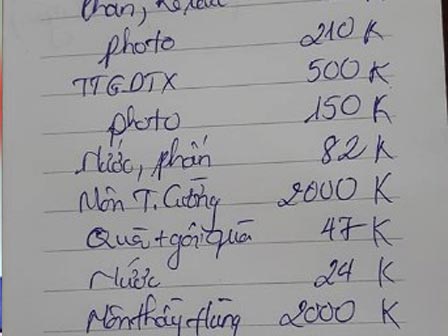 photo 210 K
TTGDTX 500 K
photo 150 K
Nước, phấn 82 K
Môn T. Cường 2000 K
Quà + gói quà 47 K
Nước 24 K
Môn thầy Hùng 2000 K